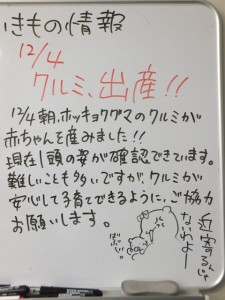 きもの情報
12/4
クルミ、出産!!
12/4朝、ホッキョクグマのクルミが
赤ちゃんを産みました!!
現在1頭の姿が確認できています。
難しいことも多いですが、クルミが
安心して子育てできるように、ご協力
お願いします。
近寄るんじゃ
ないわよー
ばぶばぶ